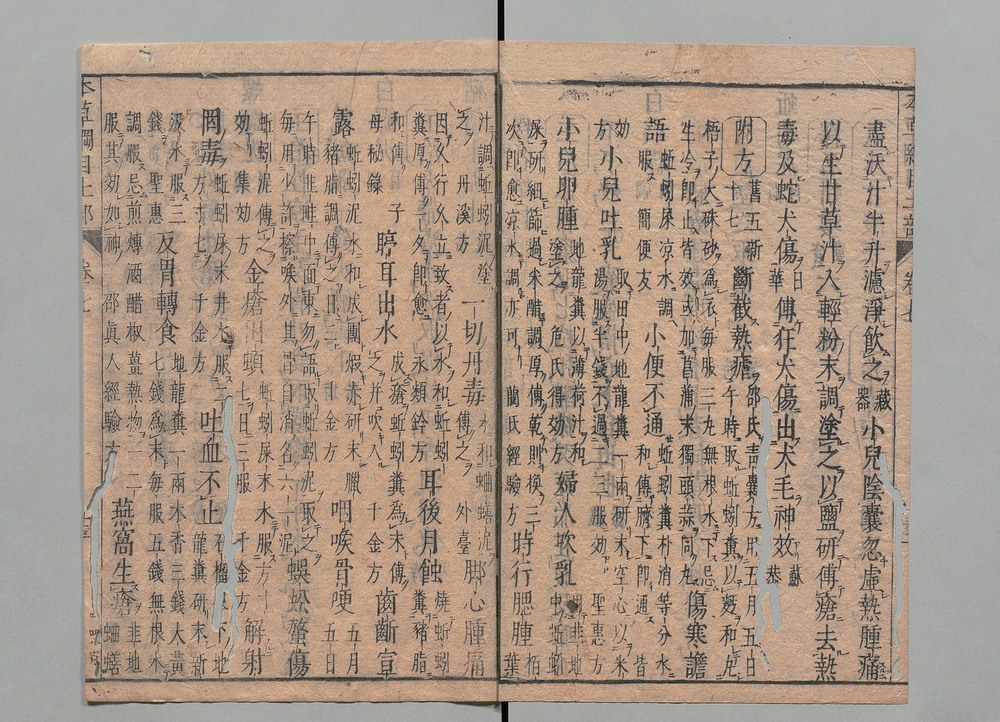 盡沃汁半升濾淨飲之藏器小兒陰囊忽虛熱腫痛
以生甘草汁入輕粉末調塗之以鹽研傅瘡去熱
毒及蛇犬傷日華傅狂犬傷出犬毛神效蘇恭
附方舊五新十七斷截熱瘧邵氏青囊方用五月五日午時取蚯蚓糞以麪和丸
梧子大硃砂為衣每服三丸無根水下忌生冷即止皆效或加菖蒲末獨頭蒜同丸傷寒譫
語蚯蚓屎凉水調服簡便方小便不通蚯蚓糞朴消等分水和傅臍下即通
効方小兒吐乳取田中地龍糞一兩研末空心以米湯服半錢不過二三服効聖惠方
小兒卵腫地龍糞以薄荷汁和塗之危氏得効方婦人吹乳韭地中蚯蚓
屎研細篩過米醋調厚傅乾則換三次即愈凉水調亦可藺氏經驗方時行腮腫柏葉
汁調蚯蚓泥塗之丹溪方一切丹毒水和蚰蟮泥傅之外臺脚心腫痛
因久行久立致者以水和蚯蚓糞厚傅一夕即愈永類鈐方耳後月蝕燒蚯蚓糞豬脂
和傅子母秘錄聤耳出水成瘡蚯蚓糞為末傅之并吹入千金方齒齗宣
露蚯蚓泥水和成團煅赤研末臘豬脂調傅之日三千金方咽喉骨哽五月五日
午時韭畦中面東勿語取蚯蚓泥收之每用少許擦喉外其骨自消名六一泥蜈蚣螫傷
蚯蚓泥傅之効集効方金瘡困頓蚯蚓屎末水服方寸七日三服千金方解射
罔毒蚯蚓屎末井水服二方寸七千金方吐血不止石榴根下地龍糞研末新
汲水服三錢聖惠反胃轉食地龍糞一兩木香三錢大黃七錢為末每服五錢無根水
調服忌煎煿酒醋椒薑熱物一二服其効如神邵真人經驗方燕窩生瘡蚰蟮